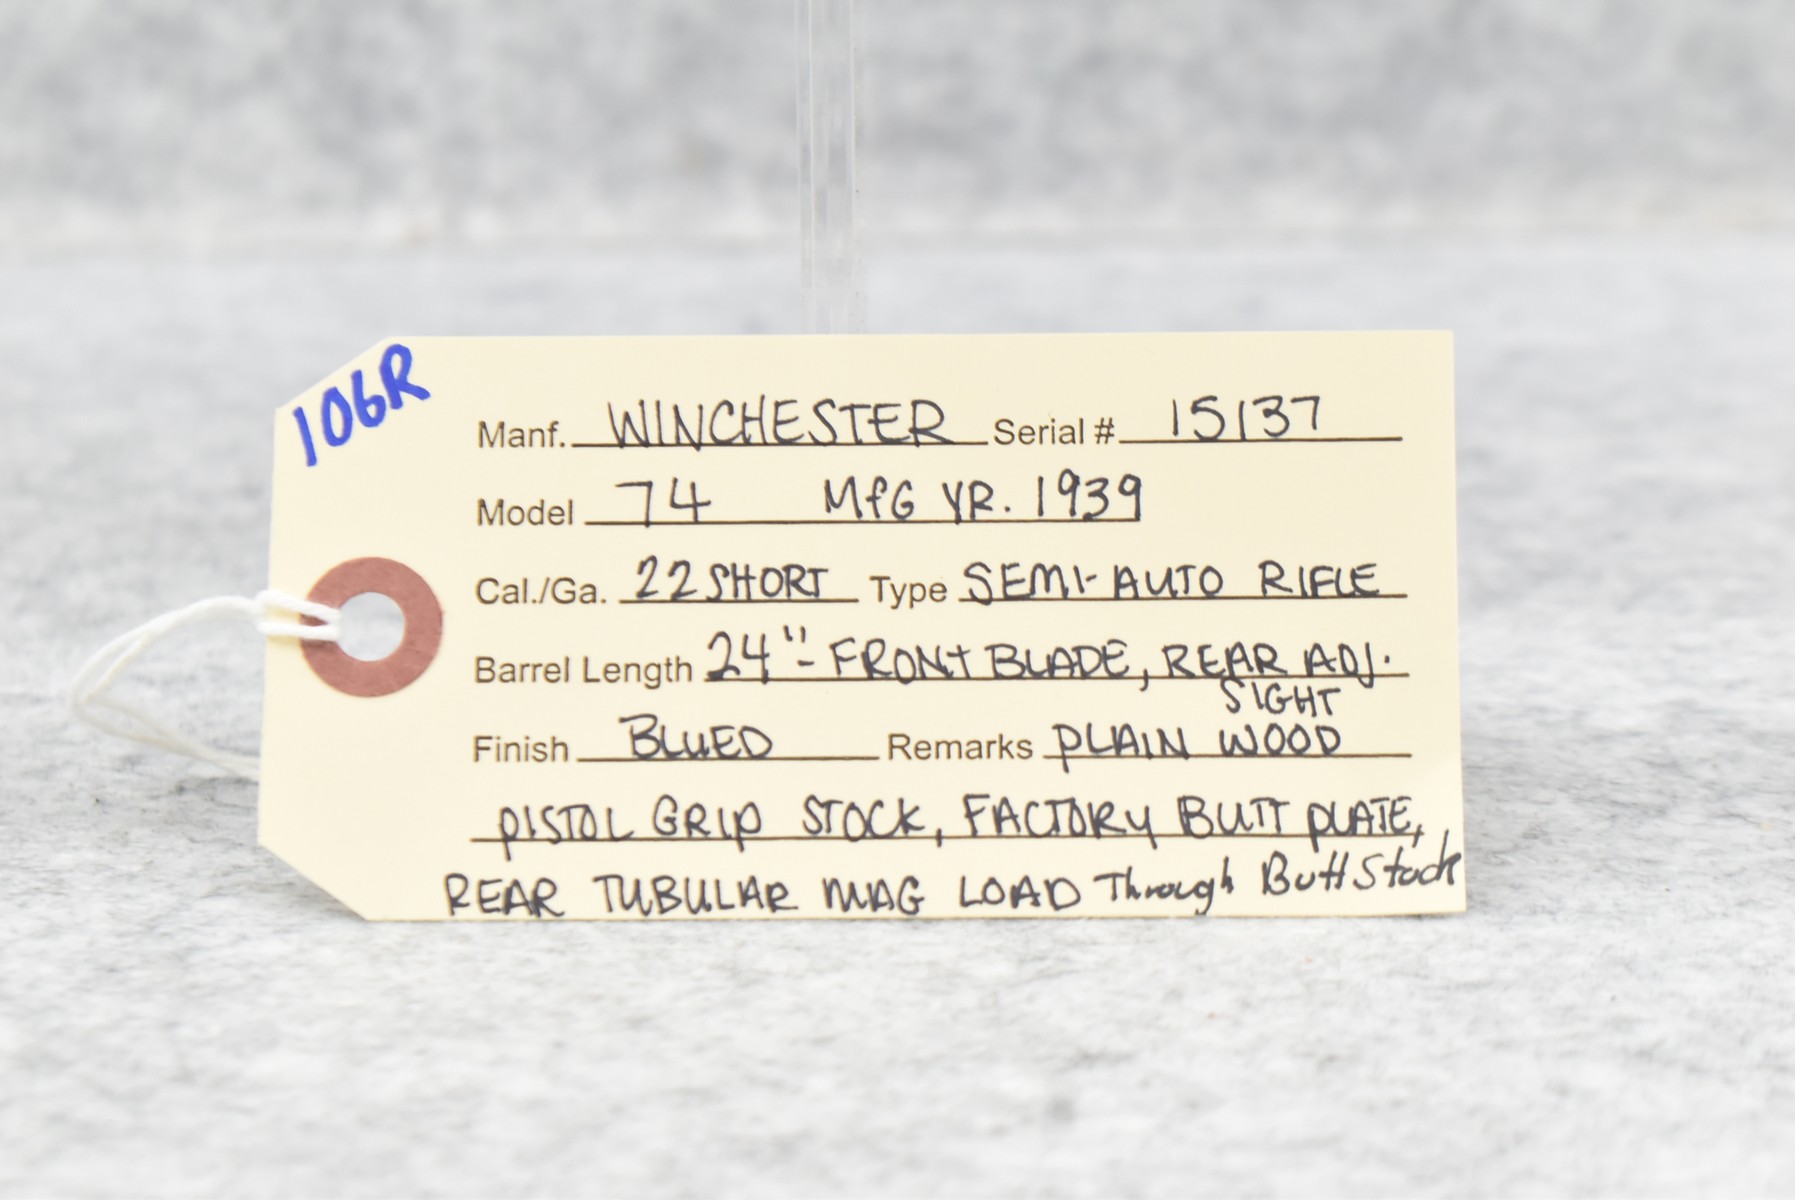 106R
Manf. WINCHESTER Serial # 15137
Model 74 MfG YR. 1939
Cal./Ga. 22 SHORT Type SEMI-AUTO RIFLE
Barrel Length 24"- FRONT BLADE, REAR ADJ.
SIGHT
Finish BLUED Remarks PLAIN WOOD
PISTOL GRIP STOCK, FACTORY BUTT PLATE,
REAR TUBULAR MAG LOAD Through Butt Stock